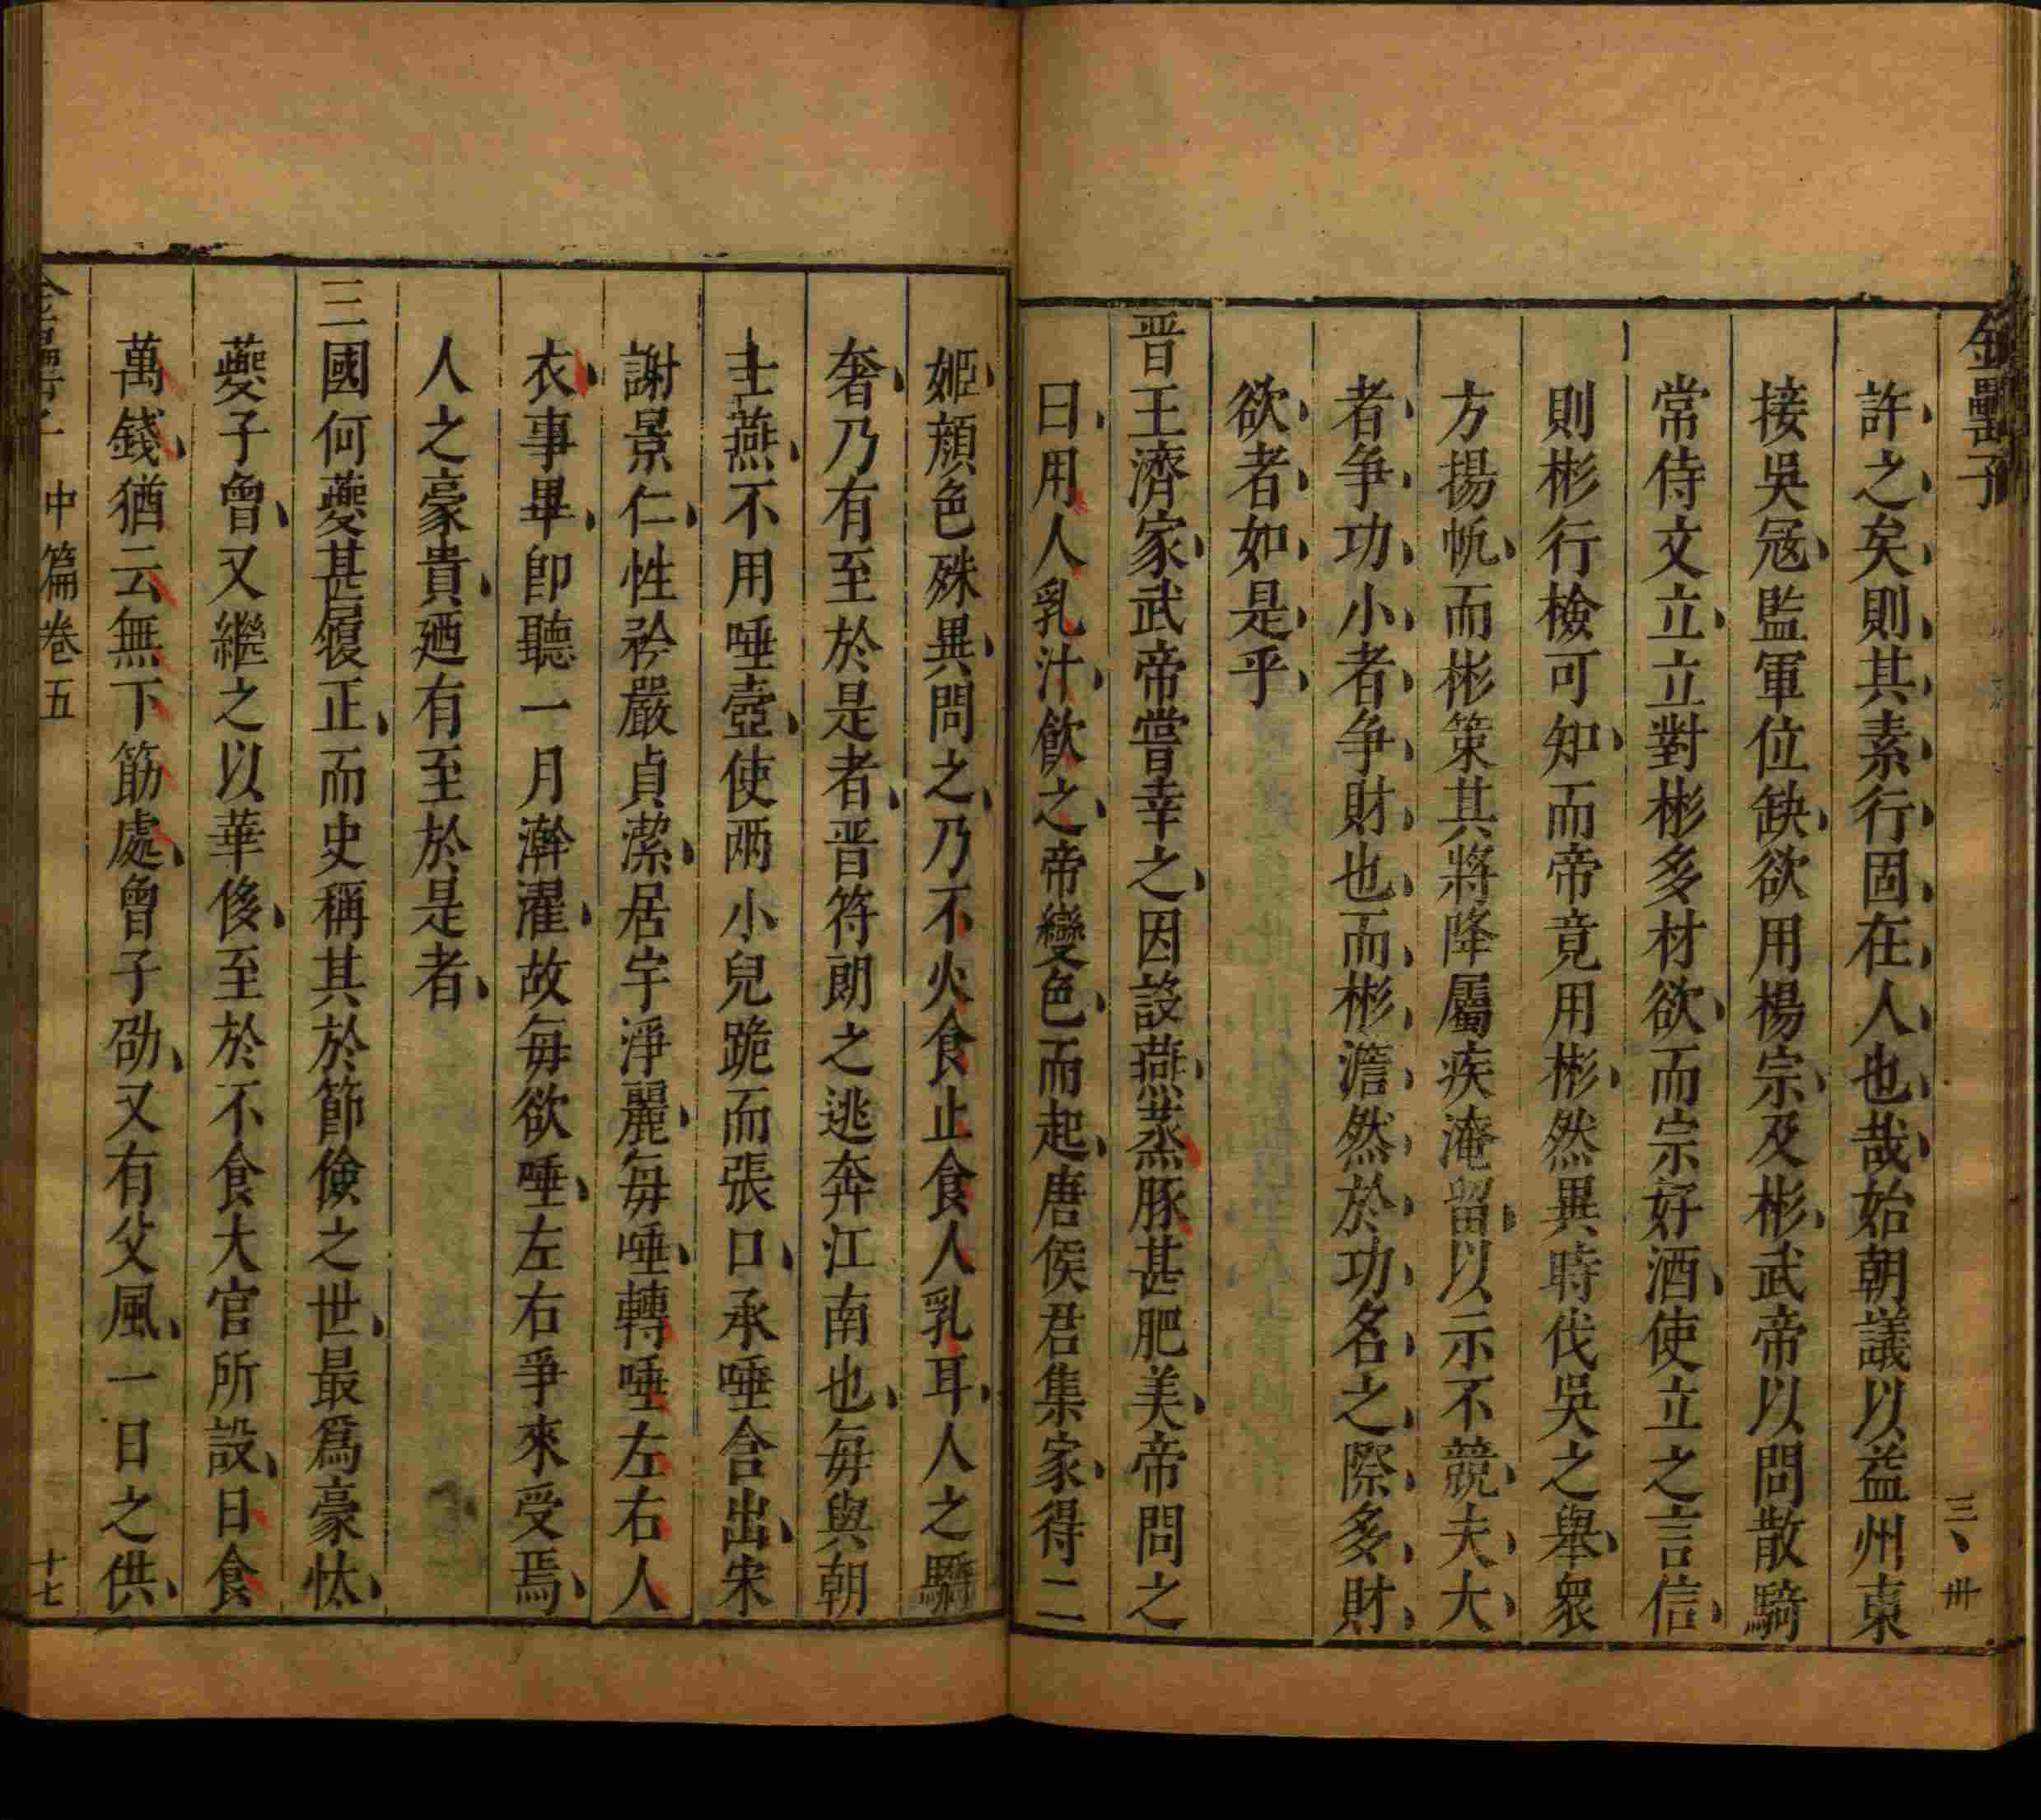 金罍子
許之矣則其素行固在人也哉始朝議以益州東
接吳冦監軍位缺欲用楊宗及彬武帝以問散騎
常侍文立立對彬多材欲而宗好酒使立之言信
則彬行檢可知而帝竟用彬然異時伐吳之舉衆
方揚帆而彬策其將降屬疾淹留以示不競夫大
者争功小者争財也而彬澹然於功名之際多財
欲者如是乎
晋王濟家武帝嘗幸之因設燕蒸豚甚肥美帝問之
曰用人乳汁飮之帝變色而起唐侯君集家得二
姬顔色殊異問之乃不火食止食人乳耳人之驕
奢乃有至於是者晋符朗之逃奔江南也每與朝
士燕不用唾壺使兩小兒跪而張口承唾含出宋
謝景仁性矜嚴貞潔居宇淨麗每唾轉唾左右人
衣事畢卽聽一月澣濯故每欲唾左右爭來受焉
人之豪貴廼有至於是者
三國何夔甚履正而史稱其於節儉之世最爲豪忲
夔子曾又繼之以華侈至於不食大官所設日食
萬錢猶云無下筯處曾子劭又有父風一日之供
中篇卷五
十七